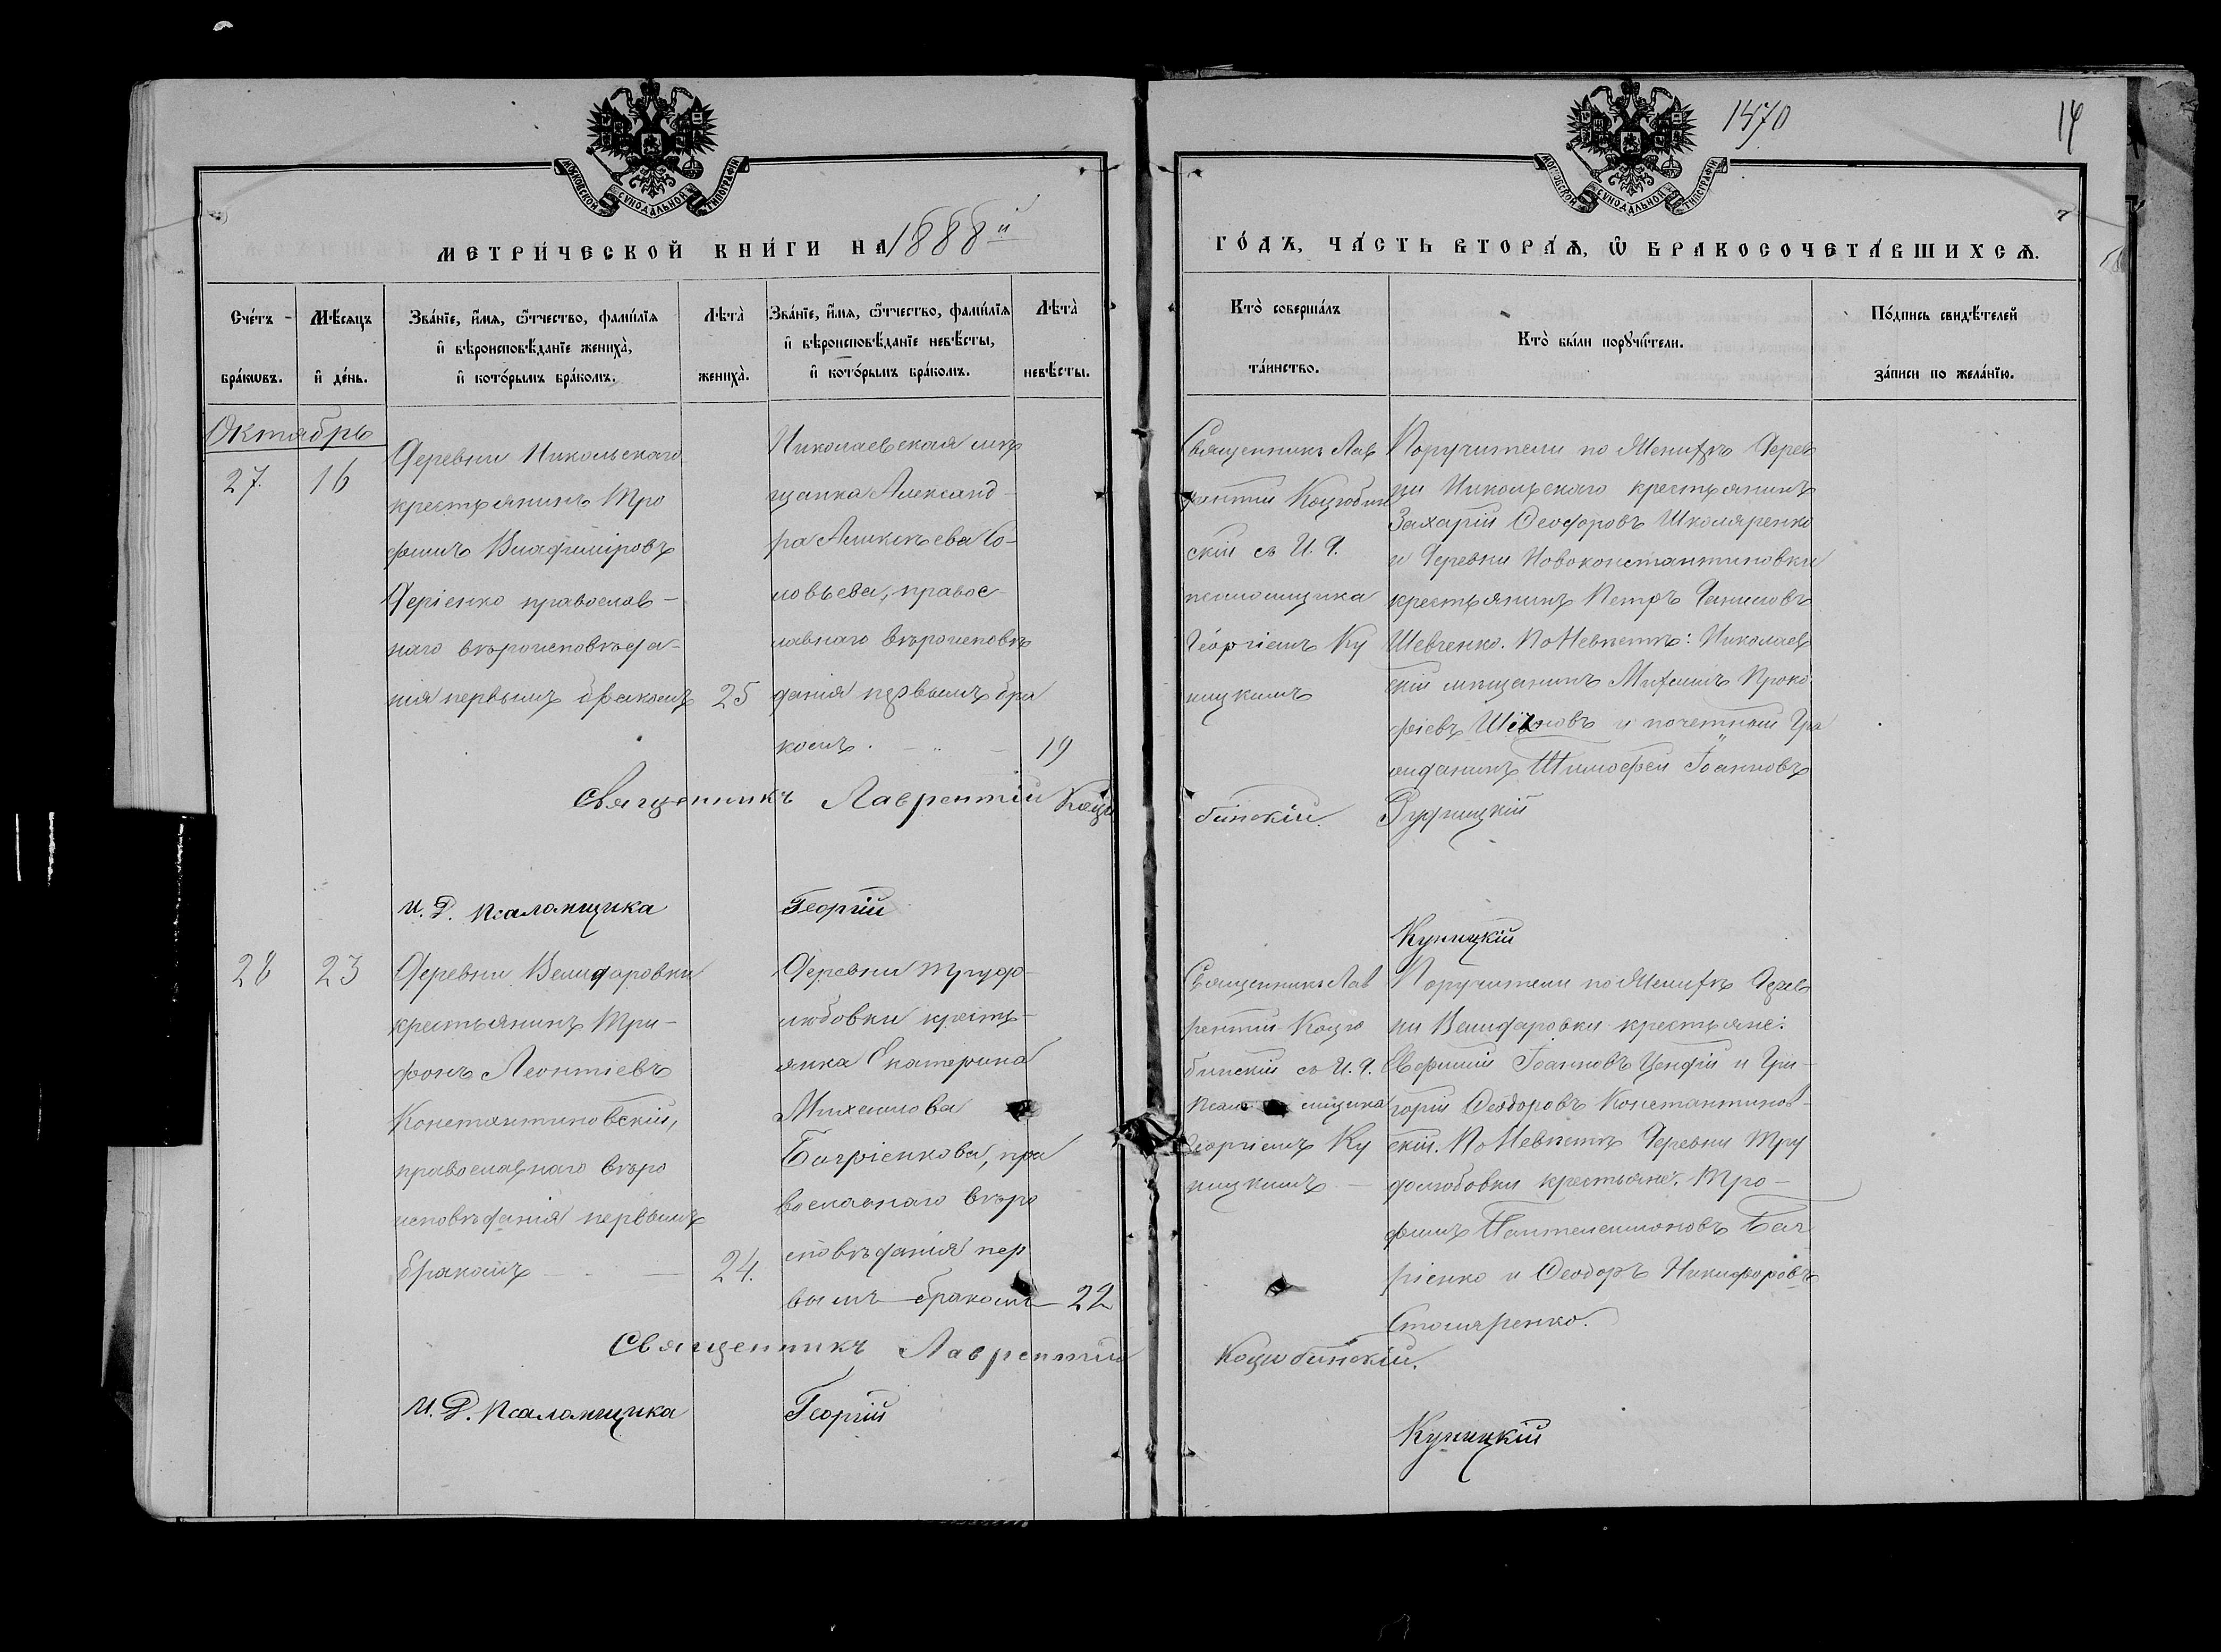 1470
14
МОСКОВСКОЙ СѴНОДАЛЬНОЙ ТИПОГРАФІИ
МОСКОВСКОЙ СѴНОДАЛЬНОЙ ТИПОГРАФІИ
МЕТРИ́ЧЕСКОЙ КНИ́ГИ НА 1888й
ГО́ДЪ, ЧА́СТЬ ВТОРА́Ѧ, Ѽ БРАКОСОЧЕТА́ВШИХСѦ.
Сче́тъ
бра́кωвъ.
Мѣ́сяцъ
и҆ де́нь.
Зва́нїе, и҆́мя, ѻ҆́тчество, фамилїя
и҆ вѣроисповѣ́данїе жениха̀,
и҆ кото́рымъ бра́комъ.
Лѣта̀
жениха̀.
Зва́нїе, и҆́мя, ѻ҆́тчество, фамилїя
и҆ вѣроисповѣ́данїе невѣ́сты,
и҆ кото́рымъ бра́комъ.
Лѣта̀
невѣ́сты.
Кто̀ соверша́лъ
та́инство.
Кто̀ бы́ли порꙋчи́тели.
По́дпись свидѣ́телей
за́писи по жела́нїю.
Октябрь
27.
16
Деревни Никольскаго
крестьянинъ Тро
фимъ Владиміровъ
Деріенко православ-
наго вѣроисповѣда-
нія первымъ бракомъ
25
Николаевская мѣ
щанка Александ-
ра Аликѣева Со-
ловьева, правос-
лавнаго вѣроисповѣ
данія первымъ бра
комъ.
19
Священникъ Лав
рентій Коцюбин
скій съ И. Д.
псаломщика
Георгіемъ Ку
ницкимъ
Поручители по Женихѣ Дерев
ни Никольскаго крестьянинъ
Захарій Ѳеодоровъ Школяренко
и Деревни Новоконстантиновки
крестьянинъ Петръ Даниловъ
Шевченко. По Невѣстѣ: Николаев
скій мѣщанинъ Михаилъ Проко
фіевъ и почетный Гра
жданинъ Тимофей Іоанновъ
Рудницкій
Священникъ Лаврентій Коцю
бинскій.
И. Д. Псаломщика Георгій
Куницкій
28
23
Деревни Велидаровки
крестьянинъ Три-
фонъ Леонтіевъ
Константиновскій,
православнаго вѣро
исповѣданія первымъ
бракомъ
24.
Деревни Трудо-
любовки кресть-
янка Екатерина
Михаилова
Багріенкова, пра
вославнаго вѣро
сповѣданія пер
вымъ бракомъ
22
Священникъ Лав
рентій Коцю
бинскій съ И. Д.
псаломщика
Георгіемъ Ку
ницкимъ
Поручители по Женихѣ Дерев
ни Велидаровки крестьяне:
Евфимій Іоанновъ Цендій и Гри-
горій Ѳеодоровъ Константинов-
скій. По Невѣстѣ Деревни Тру
долюбовки крестьяне: Тро-
фимъ Пантелеимоновъ Баг
ріенко и Ѳеодоръ Никифоровъ
Столяренко.
Священникъ Лаврентій
Коцюбинскій.
И. Д. Псаломщика Георгій
Куницкій